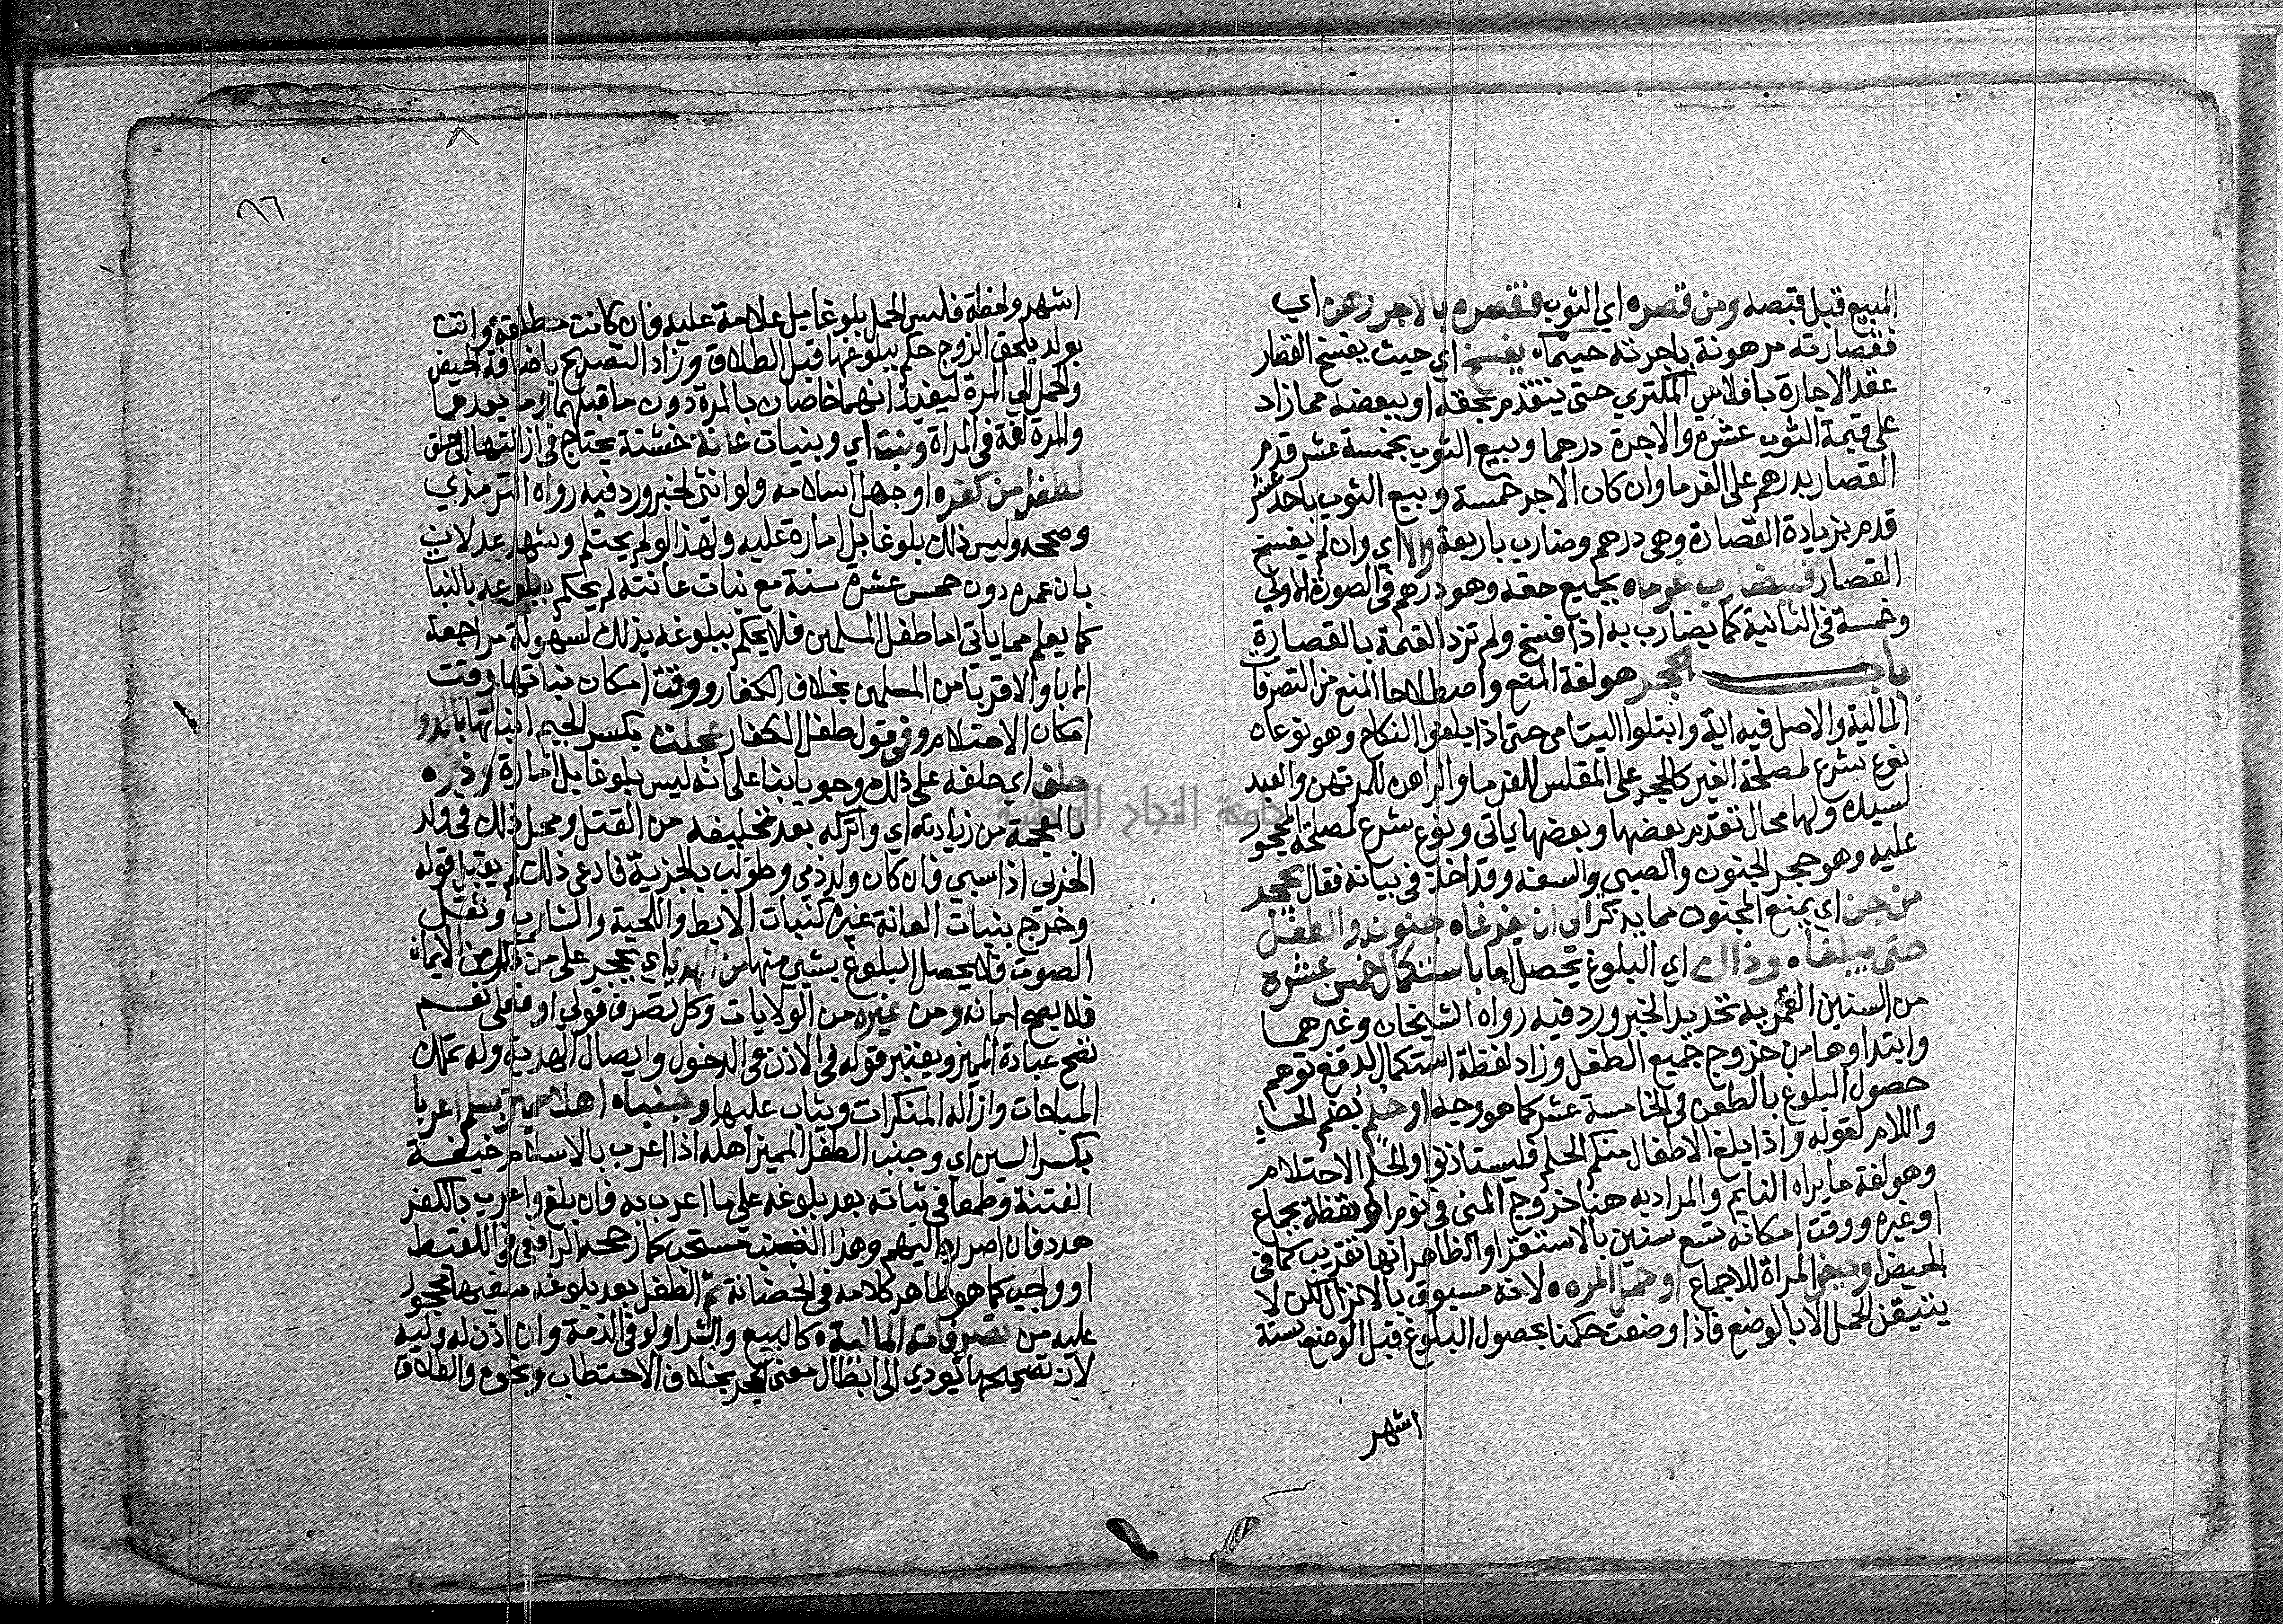 المبيع قبل قبضه ومن قصره اي الثوب فقصره بالاجر رهن اي
فقصارته مرهونة باجرته حيثما يفسخ اي حيث يفسخ القصار
عقد الاجارة بافلاس المكتري حتى يتقدم بحقه او ببعضه مما زاد
على قيمة الثوب عشره والاجرة درهما وبيع الثوب بخمسة عشر قدم
القصار بدرهم على الغرما وان كان الاجر خمسة وبيع الثوب باحد عشر
قدم بزيادة القصارة وهي درهم وضارب باربعة والا اي وان لم يفسخ
القصار فليضارب غرماه بجميع حقه وهو درهم في الصورة الاولي
وخمسة في الثانية كما يضارب به اذا فسخ ولم تزد القيمة بالقصارة
باب الحجر هو لغة المنع واصطلاحا المنع من التصرفات
المالية والاصل فيه اية وابتلوا اليتامى حتى اذا بلغوا النكاح وهو نوعان
نوع شرع لمصلحة الغير كالحجر على المفلس للغرما والراهن للمرتهن والعبد
لسيده ولها محال تقدم بعضها وبعضها ياتي ونوع شرع لمصلحة المحجور
عليه وهو حجر الجنون والصبي والسفه وقد اخذ في بيانه فقال يحجر
من جن اي يمنع المجنون مما يذكر الى ان يفد غاه جنونه والطفل
حتى يبلغا وذاك اي البلوغ يحصل اما باستكمال خمس عشره
من السنين القمريه تحديد الخبر ورد فيه رواه الشيخان وغيرهما
وابتداوها من خروج جميع الطفل وزاد لفظة استكمال لدفع توهم
حصول البلوغ بالطعن في الخامسة عشر كما هو وجه او حلم بضم الحاء
واللام لقوله واذا بلغ الاطفال منكم الحلم فليستاذنوا والحلم الاحتلام
وهو لغة ما يراه النايم والمراد به هنا خروج المني في نوم او يقظة بجماع
او غيره ووقت امكانه تسع سنين بالاستقرا والظاهر انها تقريب كما في
الحيض او حيض المراة للاجماع او حمل المره لانه مسبوق بالانزال لكن لا
يتيقن الحمل الا بالوضع فاذا وضعت حكمنا بحصول البلوغ قبل الوضع بستة
اشهر
٨٦
اشهر ولحظة فليس الحمل بلوغا بل علامة عليه فان كانت مطلقة واتت
بولد يلحق الزوج حكم ببلوغها قبل الطلاق وزاد التصريح باضافة الحيض
والحمل الي المرة ليفيد انهما خاصان بالمرة دون ما قبلهما وما بعدهما
والمرة لغة في المراة ونبت اي وبنبات عانة خشنة يحتاج في ازالتها الى حلق
لطفل من كفره او جهل اسلامه ولو انثى لخبر ورد فيه رواه الترمذي
وصححه وليس ذلك بلوغا بل امارة عليه ولهذا لو لم يحتلم وشهد عدلان
بان عمره دون خمس عشرة سنة مع نبات عانته لم يحكم ببلوغه بالنبات
كما يعلم مما ياتي اما طفل المسلمين فلا يحكم ببلوغه بذلك لسهولة مراجعة
الابا والاقربا من المسلمين بخلاف الكفار ووقت امكان نباتها وقت
امكان الاحتلام وفي قول طفل الكفار عجلت بكسر الجيم انباتها بالدوا
حلف اي حلفه على ذلك وجوبا بنا على انه ليس بلوغا بل امارة وذره
بالمعجمة من زيادته اي واتركه بعد تحليفه من القتل ومحل ذلك في ولد
الحربي اذا سبي فان كان ولد ذمي وطولب بالجزية فادعى ذلك لم يقبل قوله
وخرج بنبات العانة غيره كنبات الابط واللحية والشارب وثقل
الصوت فلا يحصل البلوغ بشي منها من اي يحجر على من ذكر من الايمان
فلا يصح ايمانه ومن غيره من الولايات وكل تصرف قولي او فعلى نعم
تصح عبادة المميز ويعتبر قوله في الاذن في الدخول وايصال الهدية وله تملك
المباحات وازاله المنكرات ويثاب عليها وجنباه اهله مميز بسلم اعربا
بكسر السين اي وجنب الطفل المميز اهله اذا اعرب بالاسلام خيفة
الفتنة وطمعا في ثباته بعد بلوغه على ما اعرب به فان بلغ واعرب بالكفر
هدد فان اصر رد اليهم وهذا التجنب مستحب كما رجحه الرافعي في اللقيط
او واجب كما هو ظاهر كلامه في الحضانة ثم الطفل بعد بلوغه سفيها محجور
عليه من تصرفات المالية كالبيع والشرا ولو في الذمة وان اذن له وليه
لان تصحيحها يودي الى ابطال معنى الحجر بخلاف الاحتطاب ونحوه والطلاق
جامعة النجاح الوطنية